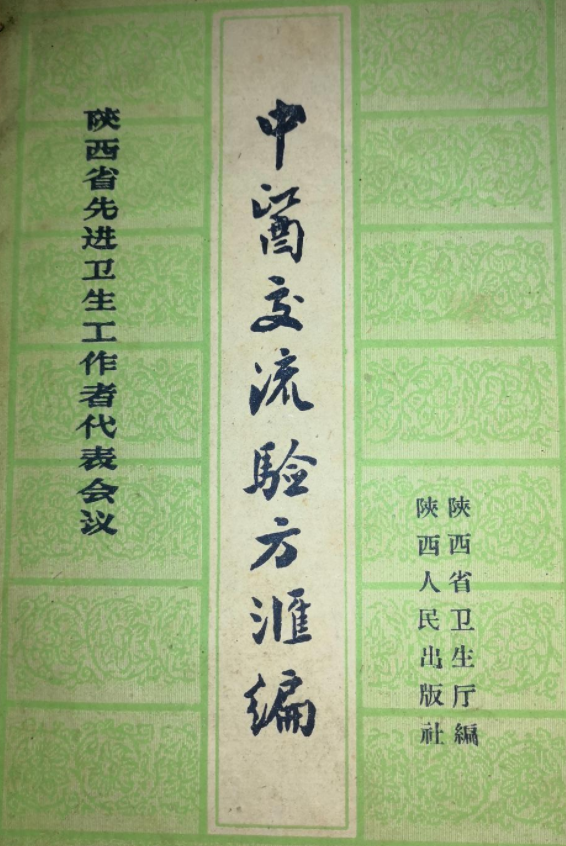 陝西省先进卫生工作者代表会议
中醫交流驗方滙编
陝西省卫生厅編
陝西人民出版社